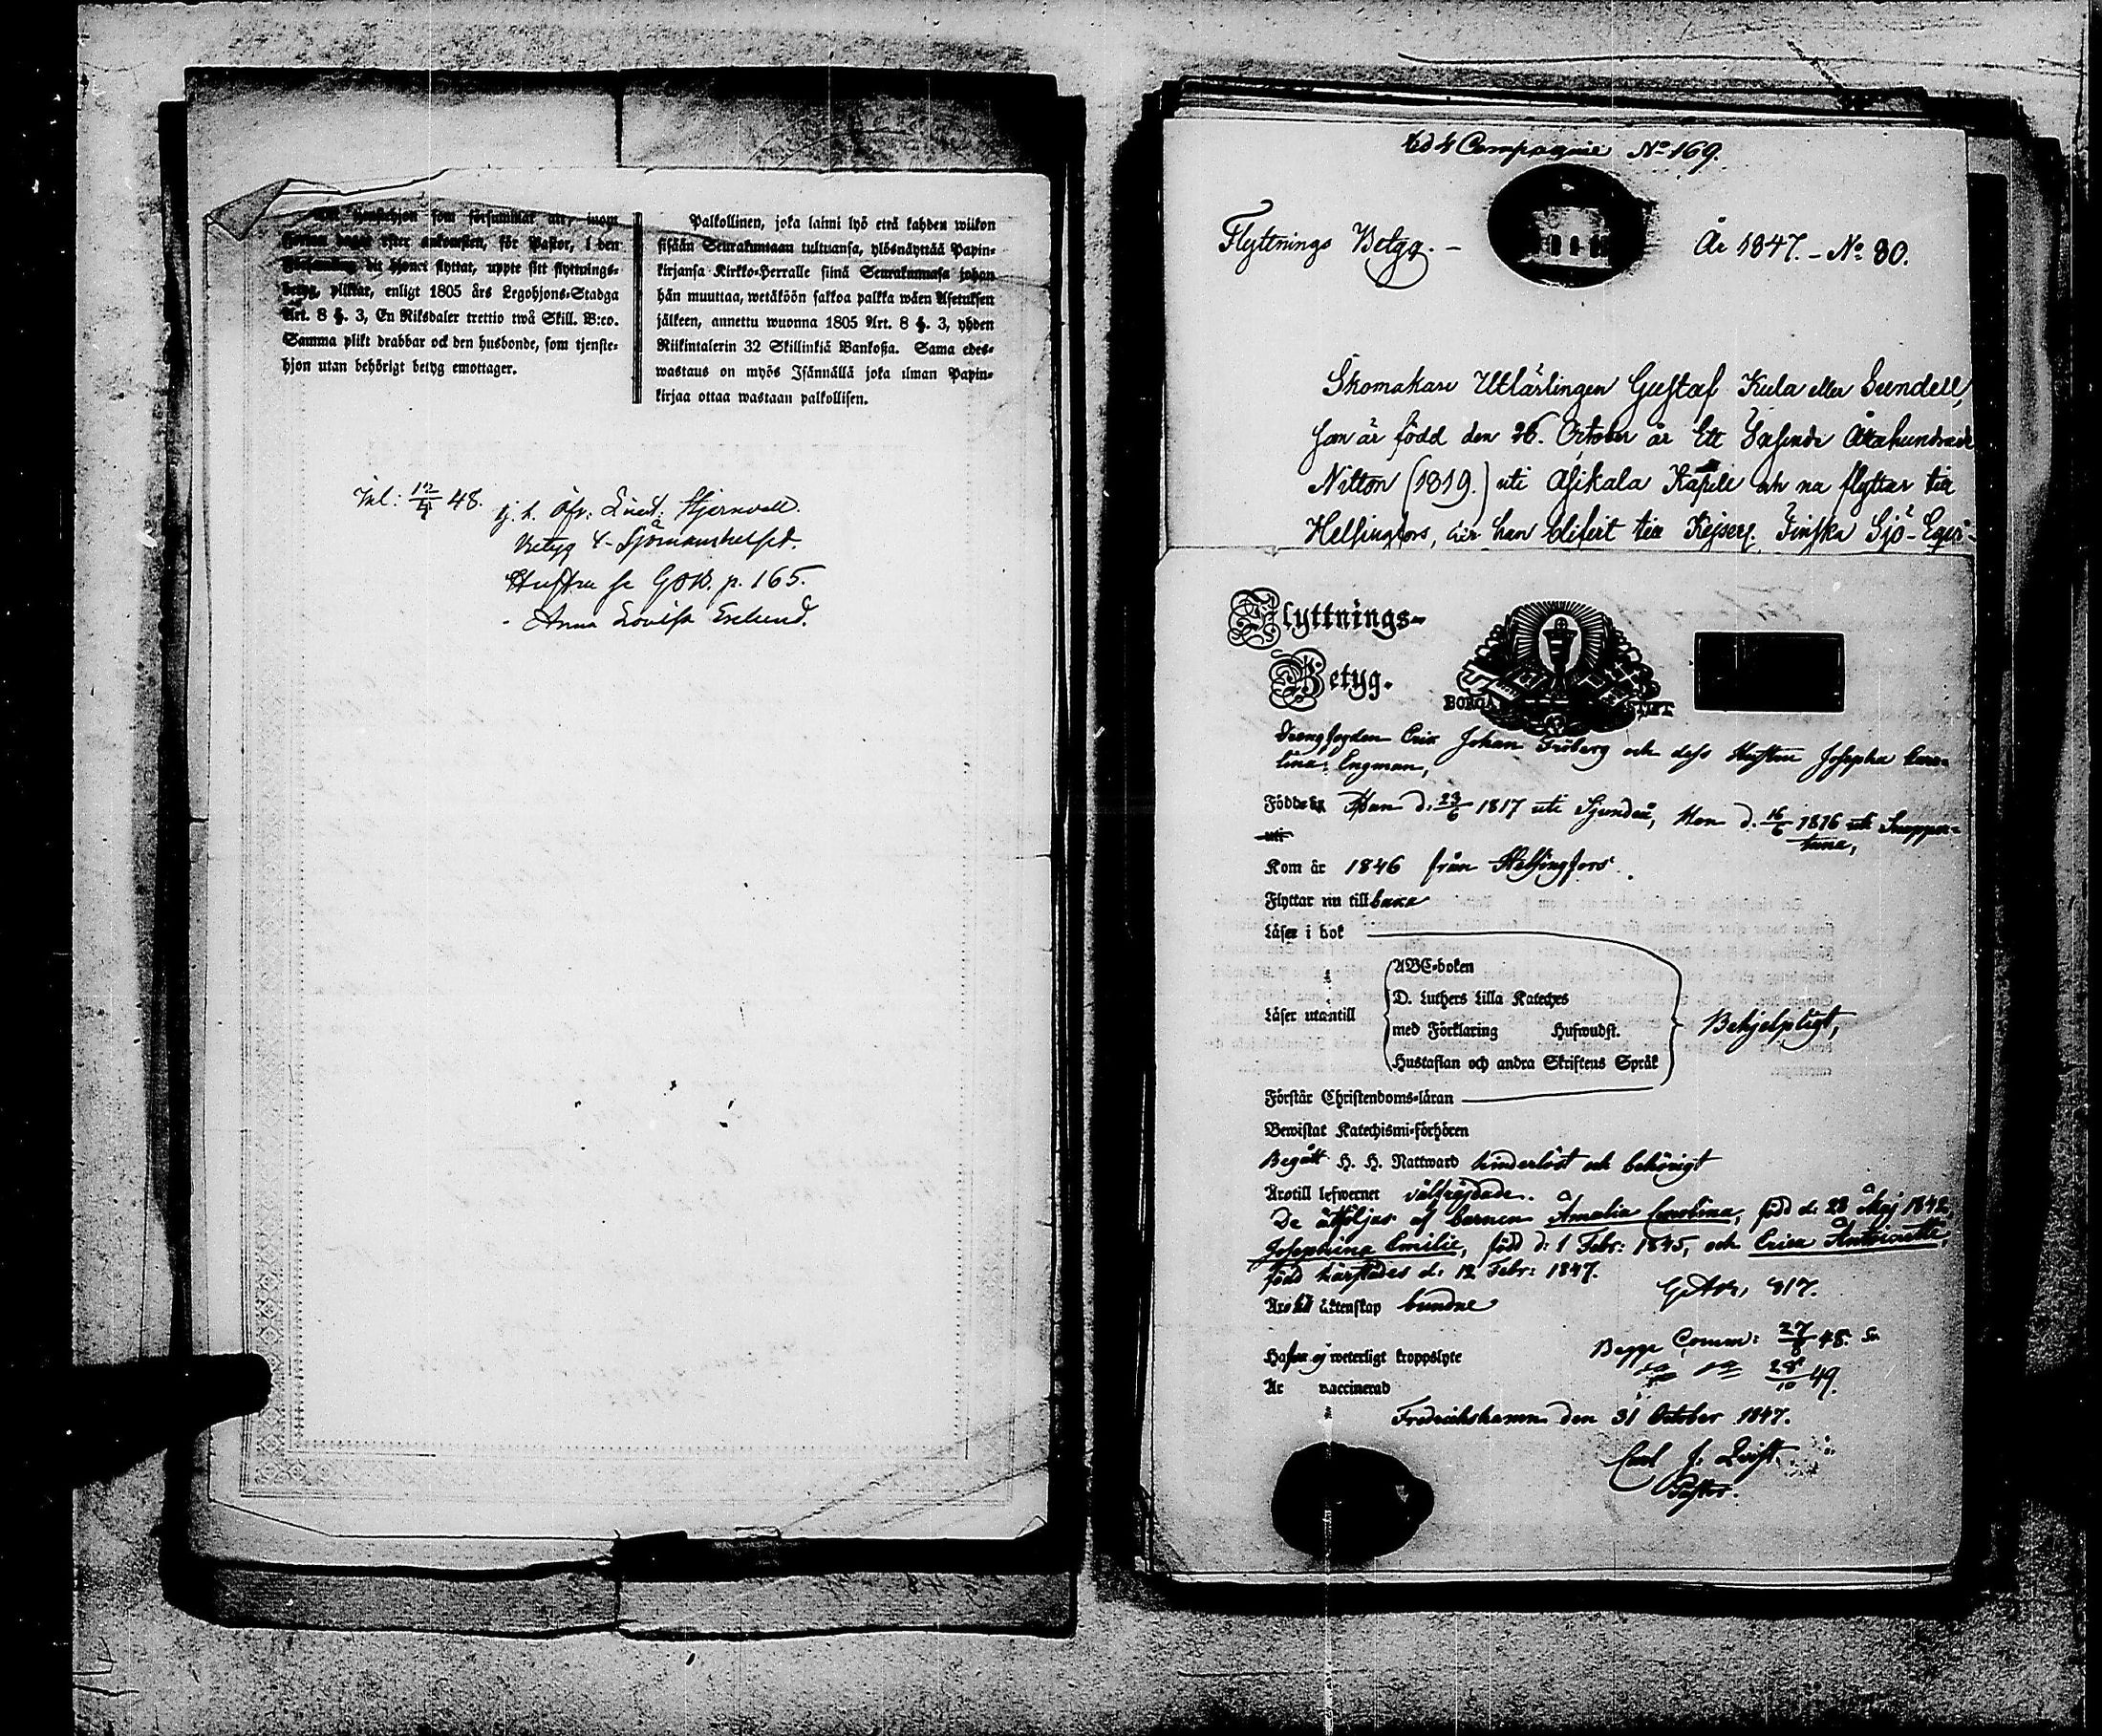 som försummat att, inom
dagar efter ankomsten, för Pastor, i den
dit hjonet flyttat, uppte sitt flyttnings-
betyg, pliktar, enligt 1805 års Legohjons-Stadga
Art. 8 §. 3, En Riksdaler trettio twå Skill. B:co.
Samma plikt drabbar ock den husbonde, som tjenste-
hjon utan behörigt betyg emottager.
Palkollinen, joka laimi lyö että kahden wiikon
sisään Seurakuntaan tultuansa, ylösnäyttää Papin-
kirjansa Kirkko-Herralle siinä Seurakunnasa johon
hän muuttaa, wetäköön sakkoa palkka wäen Asetuksen
jälkeen, annettu wuonna 1805 Art. 8 §. 3, yhden
Riikintalerin 32 Skillinkiä Bankossa. Sama edes-
wastaus on myös Isännällä joka ilman Papin-
kirjaa ottaa wastaan palkollisen.
48.
Stjernvall.
Betyg t. Sjömanshuset.
Hustru se p. 165.
Anna Lovisa
4 Compagnie No 169.
Flyttnings Betyg. - År 1847. - No 80.
Skomakare Utlärlingen Gustaf Kula eller Sundell,
som är född den 26. October år Ett Tusende Åttahundrade
Nitton (1819.) uti Asikala Kapell och nu flyttar till
Helsingfors, der han blifvit till Kejserl. Finska Sjö-Equi-
Flyttnings-
Betyg.
BORGÅ STIFT
Drengfogden Eric Johan Fröberg och dess Hustru Josepha Caro-
lina Engman,
Födde Han d. 23/6 1817 uti Sjundeå, Hon d. 16/6 1816 uti Snapper-
uti tuna,
Kom år 1846 från Helsingfors.
Flyttar nu tillbaka
Läser i bok
Läser utantill
ABC-boken
D. Luthers Lilla Kateches
med Förklaring Hufwudst.
Hustaflan och andra Skriftens Språk
Behjelpligt,
Förstår Christendoms-läran
Bewistat Katechismi-förhören
Begått H. H. Nattward hinderlöst och behörigt
Äro till lefwernet välfräjdade.
De åtföljas af barnen Amalia Carolina, född d. 28 Maj 1842,
Josephina Emilie, född d. 1 Febr: 1845, och Erica Antoinette,
född härstädes d. 12 Febr: 1847.
817.
Äro till äktenskap bundne
Begge Comm: 27/8 48.
Hafva ej weterligt kroppslyte
28/10 49.
Är vaccinerad
Fredrikshamn den 31 October 1847.
Carl J. Qvist
Pastor.